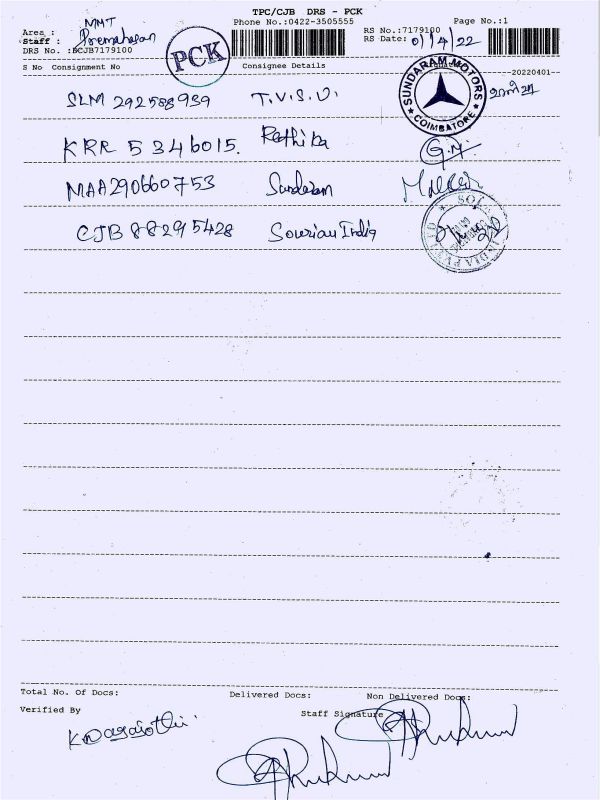 TPC/CJB DRS - PCK
Phone No.:0422-3505555
Page No.:1
Area : MMT
Staff :
DRS No. :BCJB7179100
PCK
RS No.:7179100
RS Date: 01/4/22
S No Consignment No Consignee Details
--20220401--
SLM 292588939 T.V.S.U.
SUNDARAM MOTORS
COIMBATORE
KRR 5346015. Rethika
MAA290660753 Sundaram
CJB 88295428 Sourian India
Total No. Of Docs: Delivered Docs: Non Delivered Docs:
Verified By Staff Signature